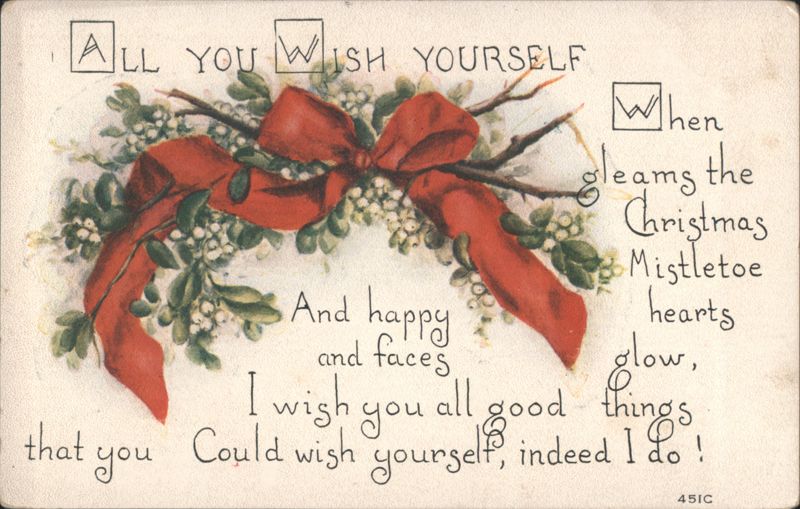 All you Wish yourself
When
gleams the
Christmas
Mistletoe
And happy hearts
and faces glow,
I wish you all good things
that you Could wish yourself, indeed I do!
451C